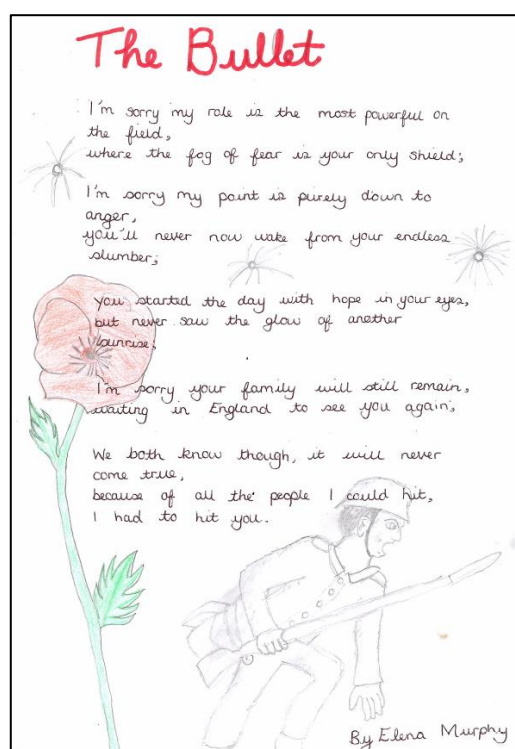 The Bullet
I'm sorry my role is the most powerful on
the field,
where the fog of fear is your only shield;
I'm sorry my point is purely down to
anger,
you'll never now wake from your endless
slumber;
You started the day with hope in your eyes,
but never saw the glow of another
sunrise;
I'm sorry your family will still remain,
waiting in England to see you again;
We both know though, it will never
come true,
because of all the people I could hit,
I had to hit you.
By Elena Murphy